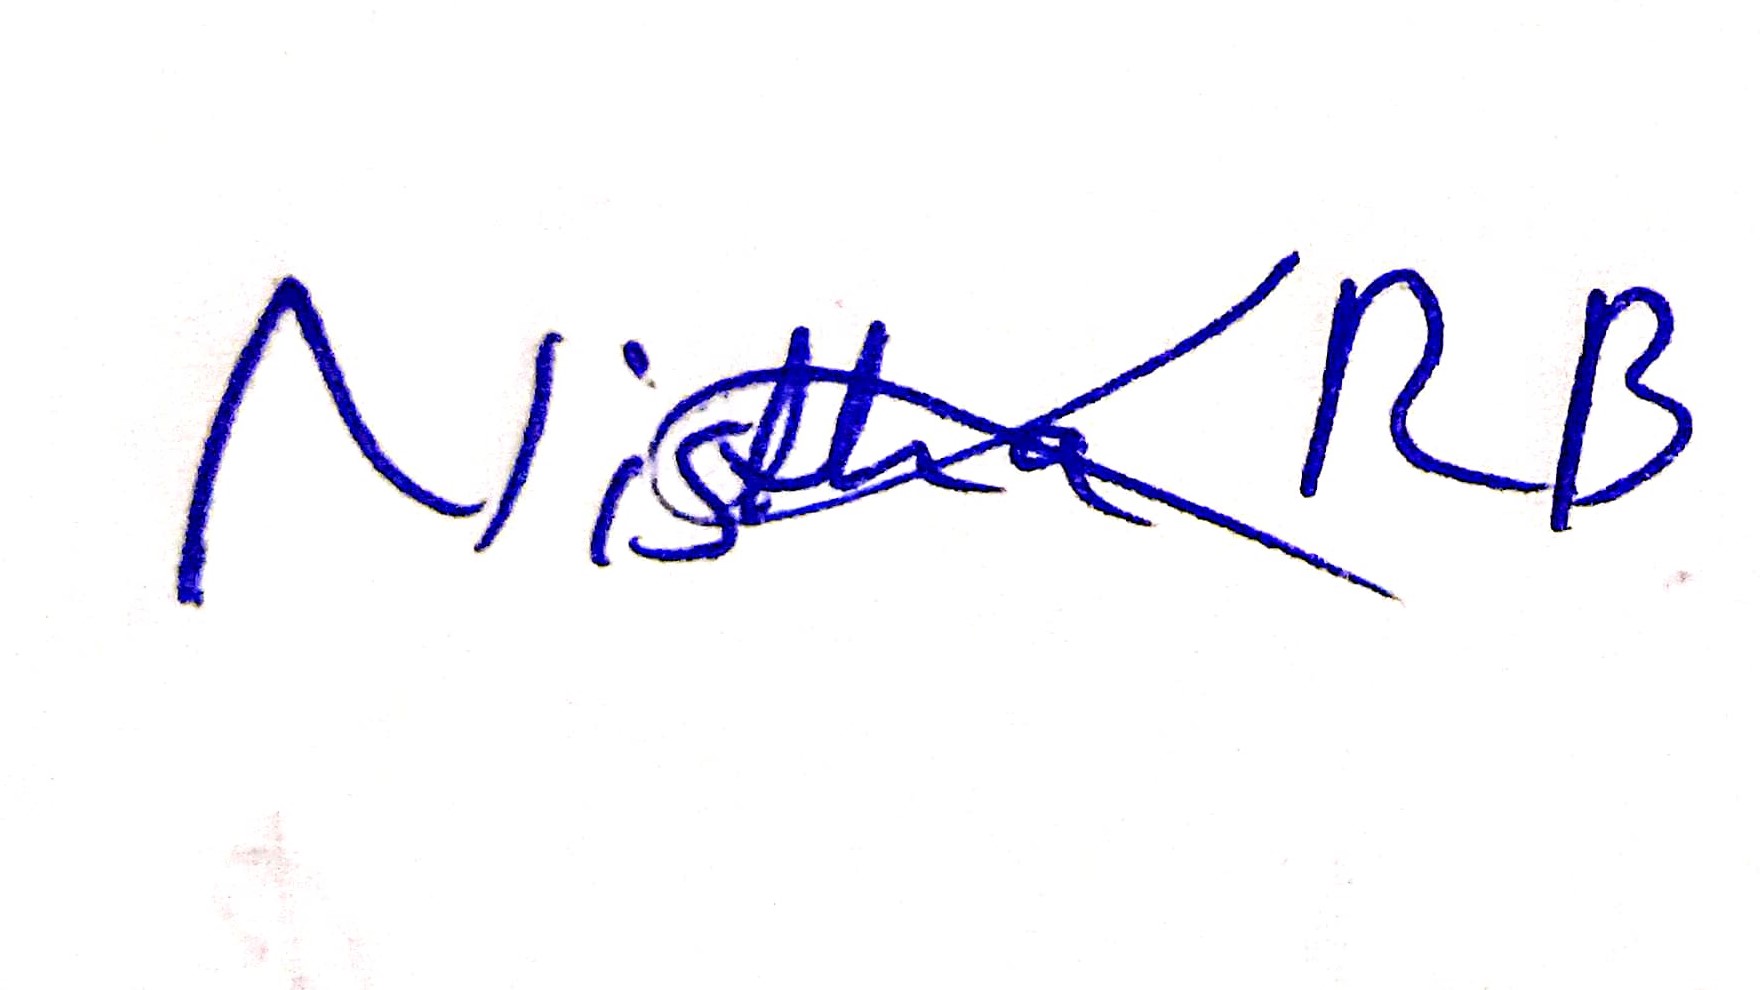 Nistha RB